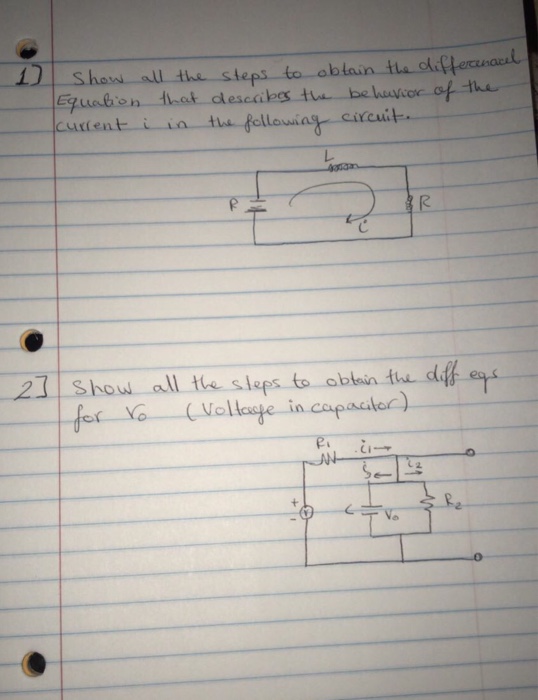 1] Show all the steps to obtain the differenacel
Equation that describes the behavior of the
current i in the following circuit.
L
R
i
2] Show all the steps to obtain the diff eqs
for Vo (Voltage in capacitor)
R1 i1
i2
+
-
C
Vo
R2